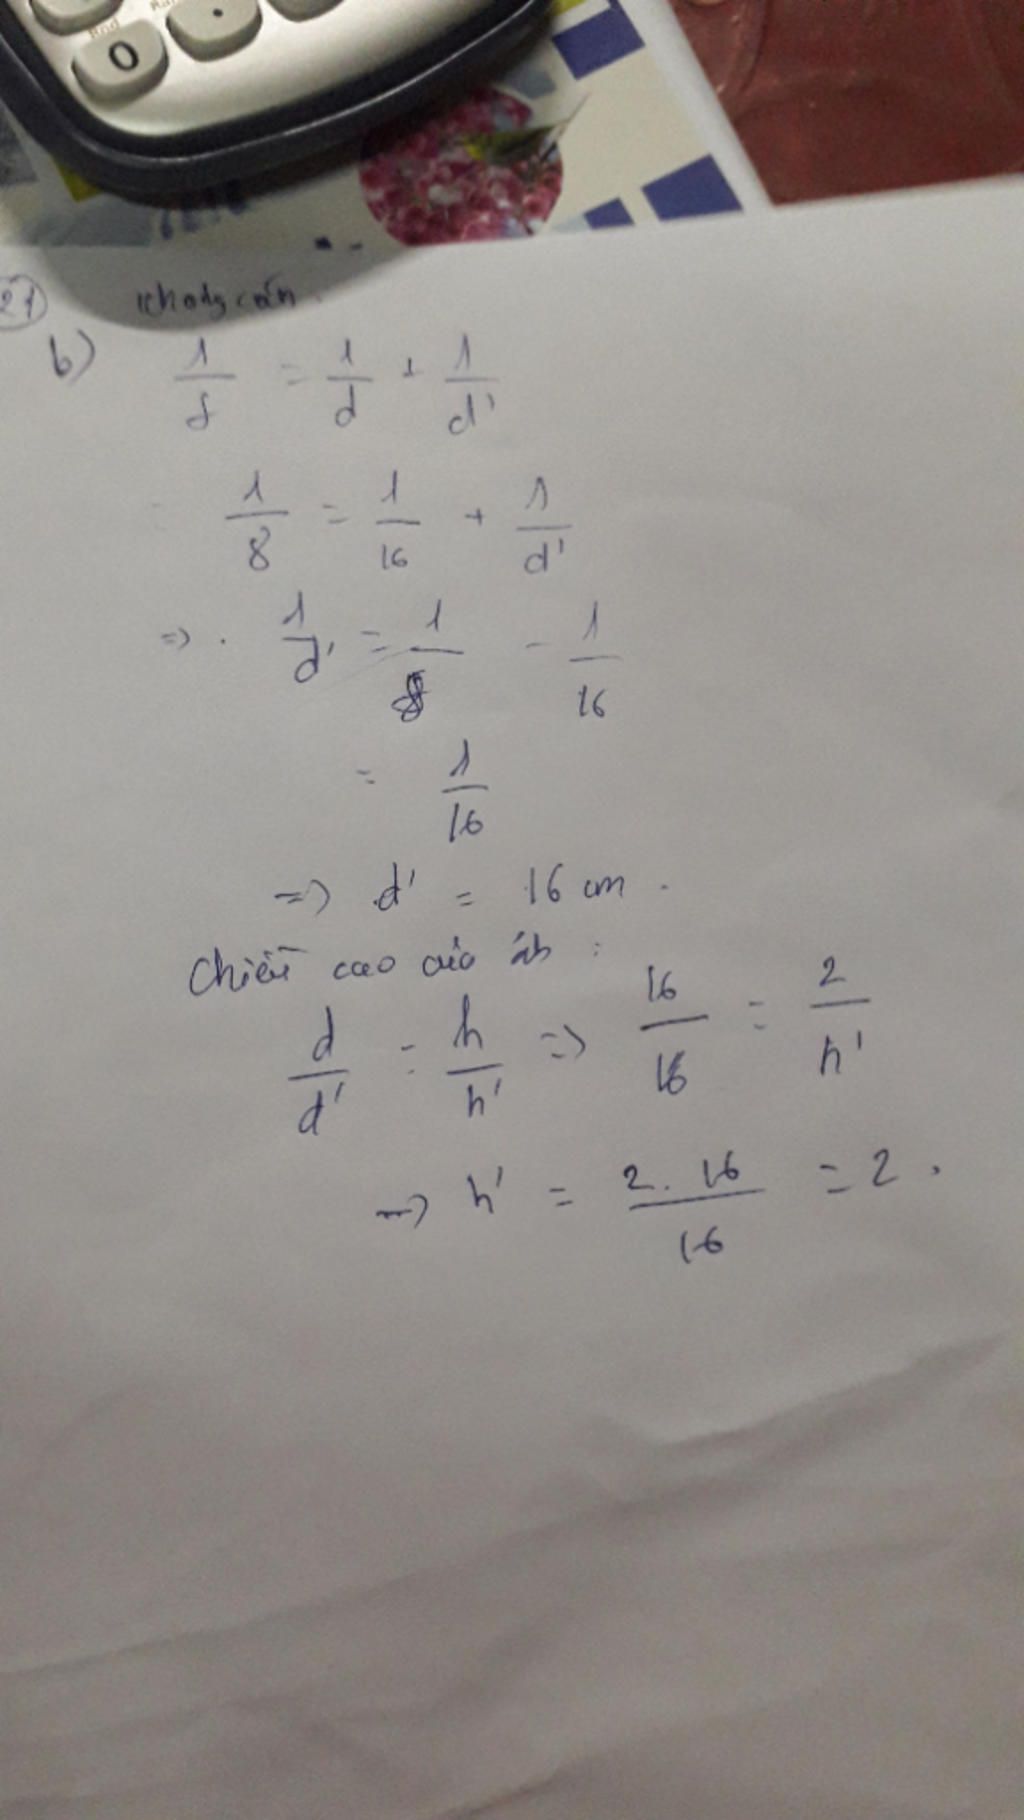 0
21
b) 1/f = 1/d + 1/d'
1/8 = 1/16 + 1/d'
=> 1/d' = 1/8 - 1/16
= 1/16
=> d' = 16 cm.
Chiều cao của ảnh :
d/d' = h/h' => 16/16 = 2/h'
=> h' = 2.16/16 = 2.